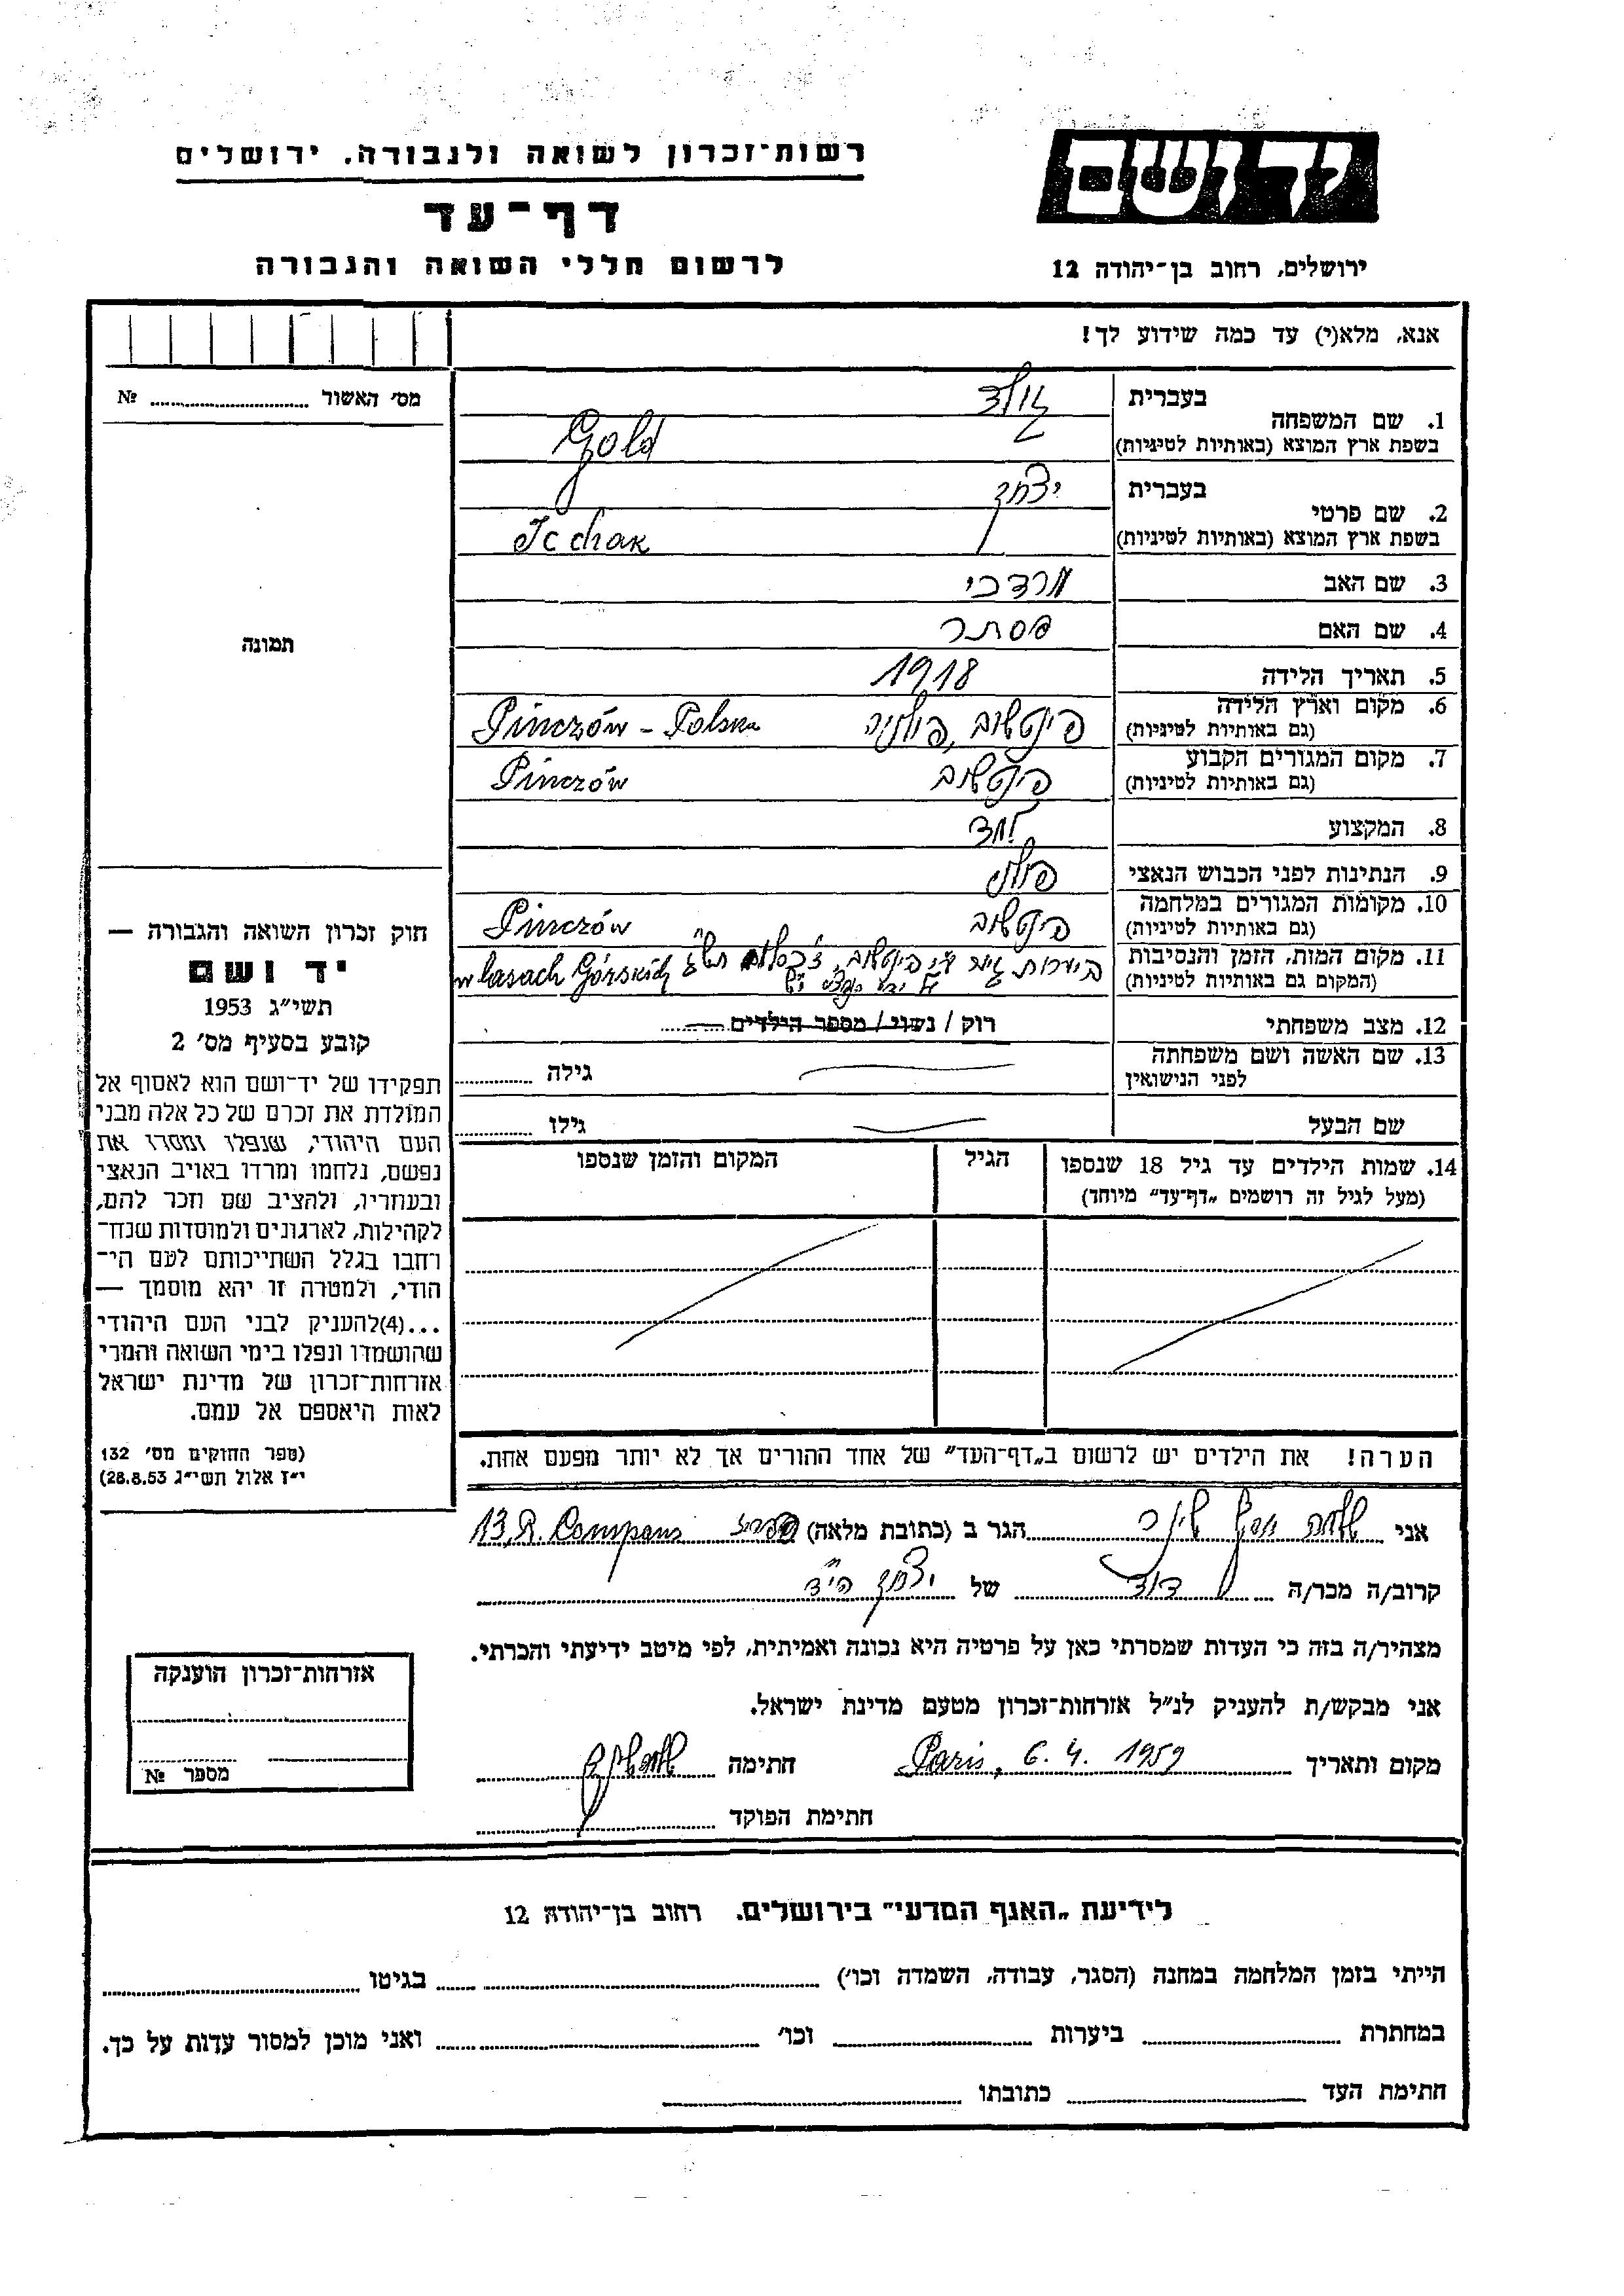 רשות־זכרון לשואה ולגבורה. ירושלים
דף־עד
לרשום חללי השואה והגבורה
יד ושם
ירושלים, רחוב בן־יהודה 12
אנא, מלא(י) עד כמה שידוע לך!
מס׳ האשור № 
תמונה
1. שם המשפחה בעברית גולד
בשפת ארץ המוצא (באותיות לטיניות) Gold
2. שם פרטי בעברית יצחק
בשפת ארץ המוצא (באותיות לטיניות) Icchak
3. שם האב מרדכי
4. שם האם אסתר
5. תאריך הלידה 1918
6. מקום וארץ הלידה פינטשוב, פולניה Pinczów - Polska
(גם באותיות לטיניות)
7. מקום המגורים הקבוע פינטשוב Pinczów
(גם באותיות לטיניות)
8. המקצוע
9. הנתינות לפני הכבוש הנאצי פולני
10. מקומות המגורים במלחמה פינטשוב Pinczów
(גם באותיות לטיניות)
11. מקום המות, הזמן והנסיבות ביערות פינטשוב, תש״ג w lasach Górskich
(המקום גם באותיות לטיניות)
12. מצב משפחתי רוק / נשוי / מספר הילדים
13. שם האשה ושם משפחתה גילה
לפני הנישואין
שם הבעל גילו
14. שמות הילדים עד גיל 18 שנספו הגיל המקום והזמן שנספו
(מעל לגיל זה רושמים „דף־עד״ מיוחד)
הערה! את הילדים יש לרשום ב„דף־העד״ של אחד ההורים אך לא יותר מפעם אחת.
חוק זכרון השואה והגבורה —
יד ושם
תשי״ג 1953
קובע בסעיף מס׳ 2
תפקידו של יד־ושם הוא לאסוף אל
המולדת את זכרם של כל אלה מבני
העם היהודי, שנפלו ומסרו את
נפשם, נלחמו ומרדו באויב הנאצי
ובעוזריו, ולהציב שם וזכר להם,
לקהילות, לארגונים ולמוסדות שנח־
רחבו בגלל השתייכותם לעם הי־
הודי, ולמטרה זו יהא מוסמך —
...(4)להעניק לבני העם היהודי
שהושמדו ונפלו בימי השואה והמרי
אזרחות־זכרון של מדינת ישראל
לאות היאספם אל עמם.
(ספר החוקים מס׳ 132
י״ז אלול תשי״ג 28.8.53)
אני שלמה הגר ב (כתובת מלאה) 13, R. Compans
קרוב/ה מכר/ה דוד של יצחק הי״ד
מצהיר/ה בזה כי העדות שמסרתי כאן על פרטיה היא נכונה ואמיתית, לפי מיטב ידיעתי והכרתי.
אני מבקש/ת להעניק לנ״ל אזרחות־זכרון מטעם מדינת ישראל.
מקום ותאריך Paris, 6. 4. 1959 חתימה
חתימת הפוקד
אזרחות־זכרון הוענקה
מספר №
לידיעת „האגף המדעי״ בירושלים. רחוב בן־יהודה 12
הייתי בזמן המלחמה במחנה (הסגר, עבודה, השמדה וכו׳) בגיטו
במחתרת ביערות וכו׳ ואני מוכן למסור עדות על כך.
חתימת העד כתובתו